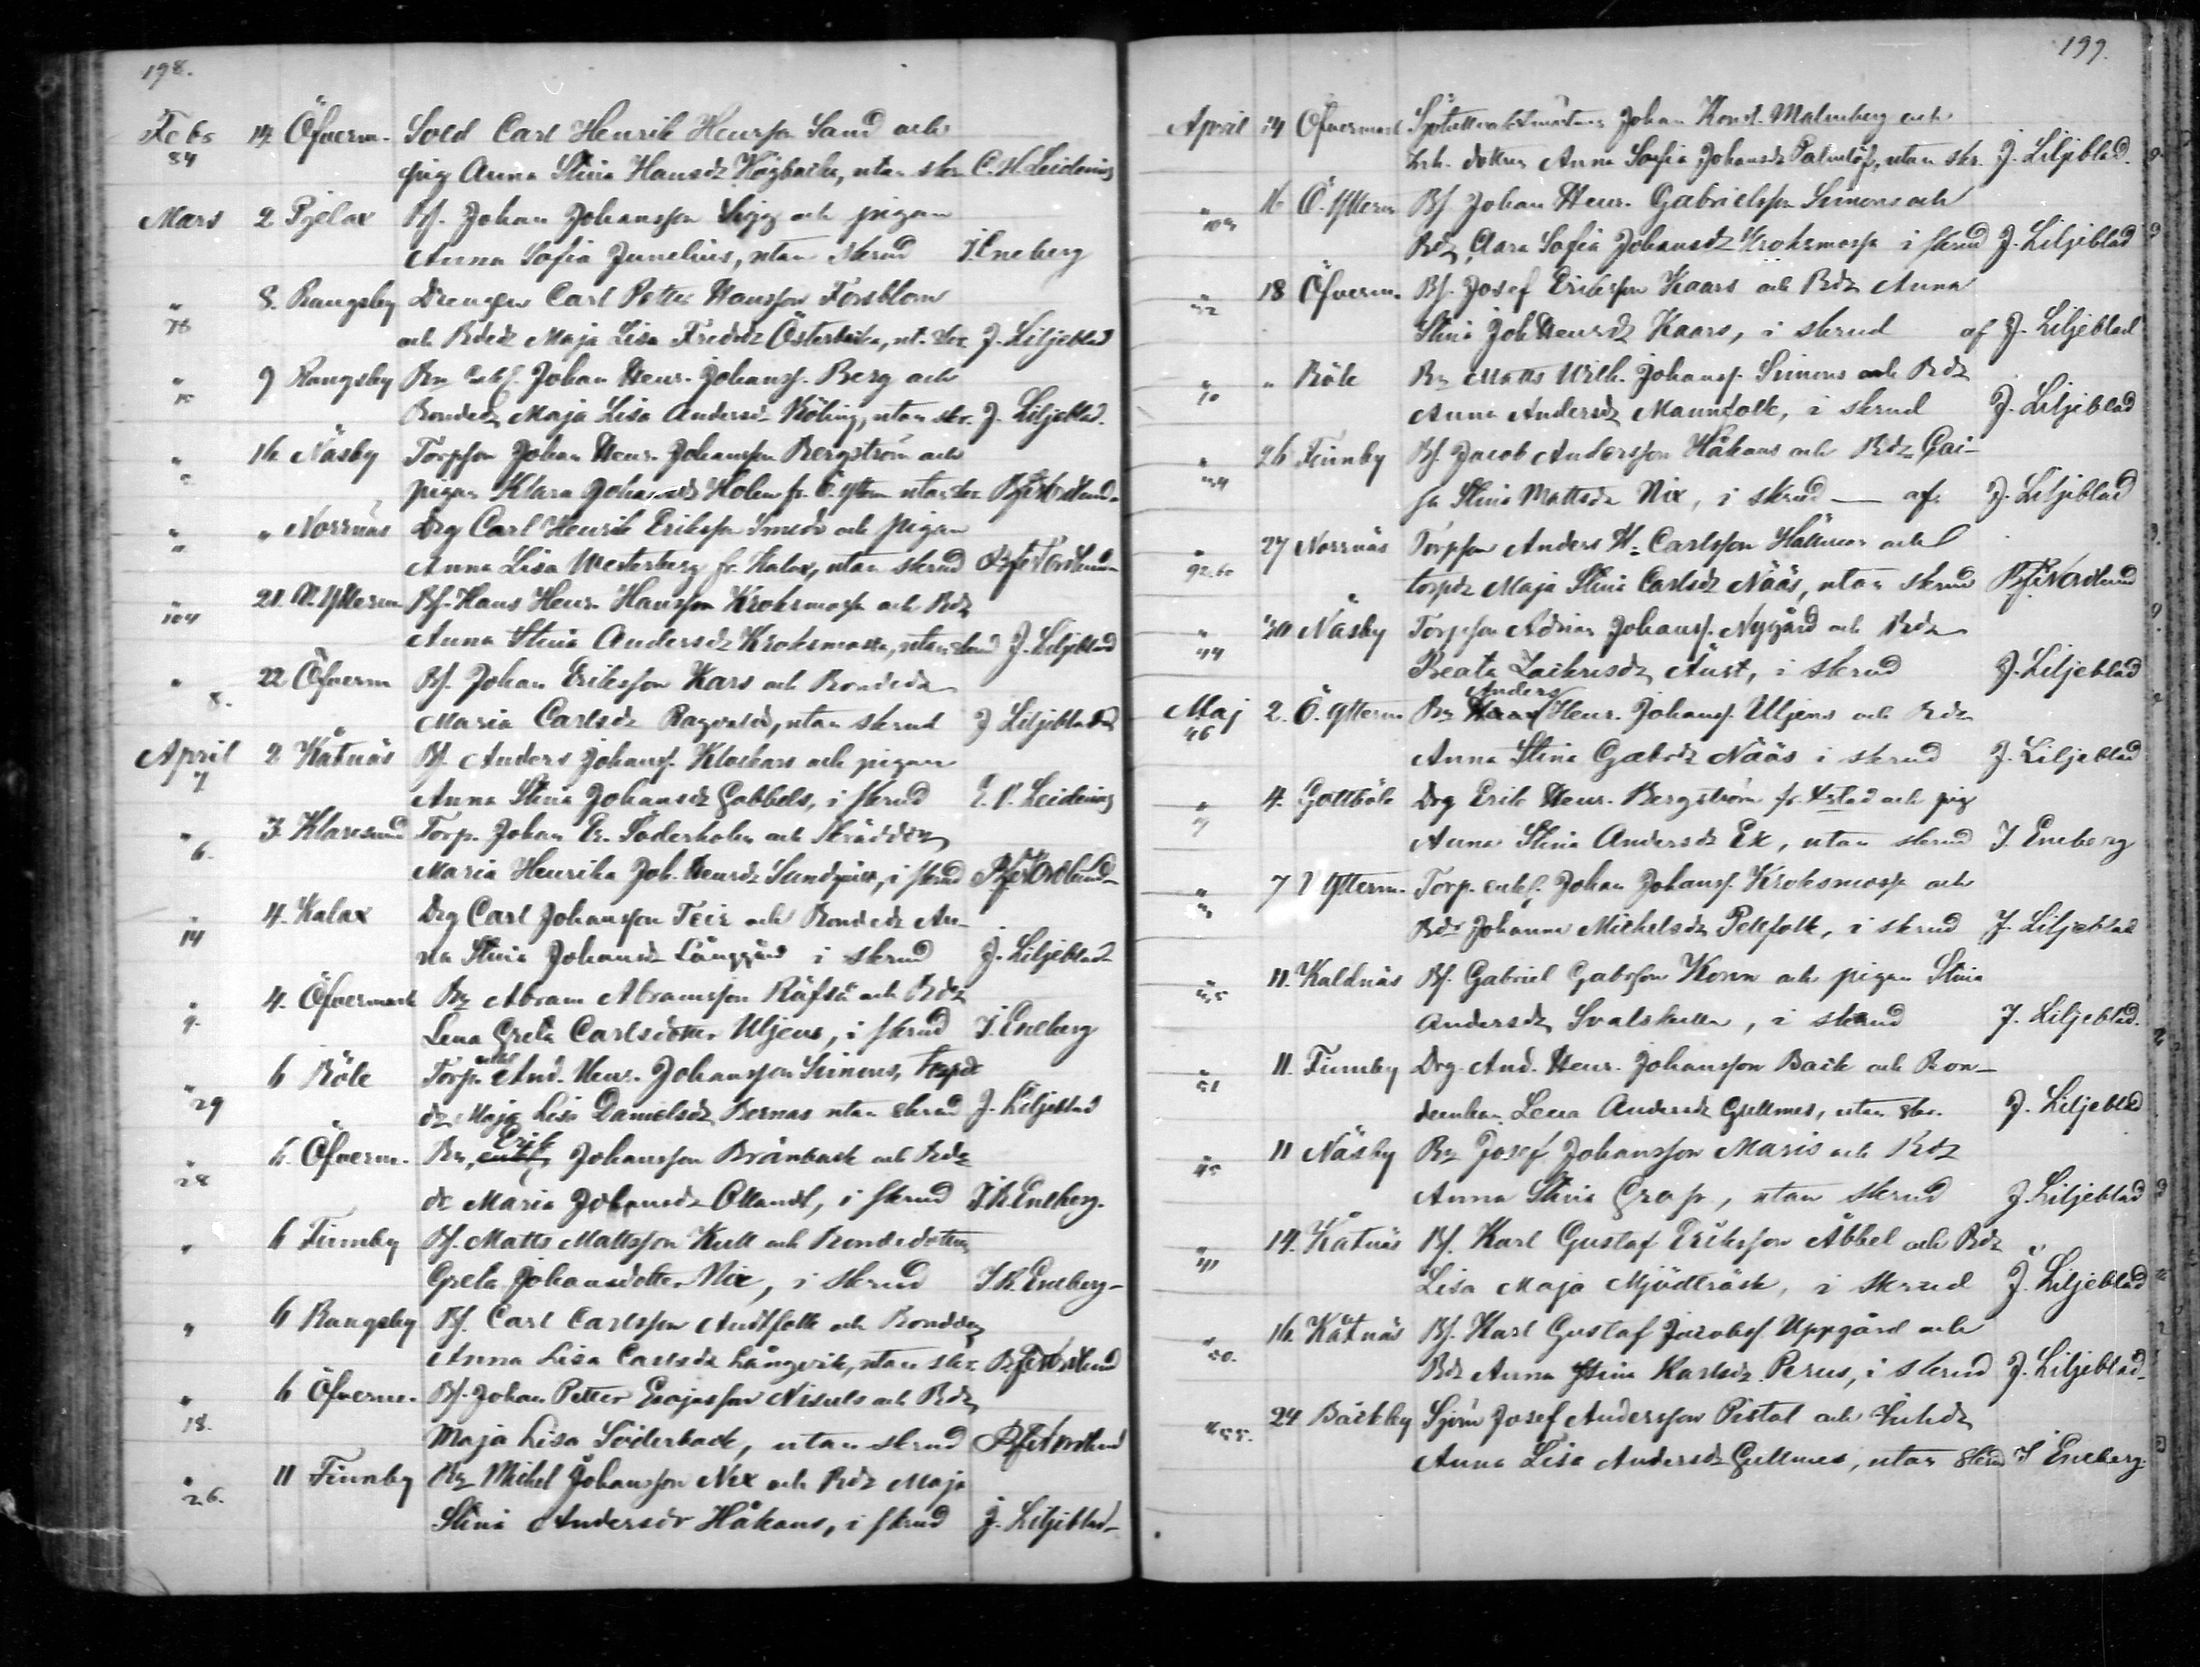 198.
Feb. 14 Öfverm. Sold Carl Henrik Henrson Sand och
84 pig Anna Stina Hansdr Högback, utan skr. C. H. Leidenius
Mars 2 Pjelax Bs. Johan Johansson Sigg och pigan
Anna Sofia Junelius, utan skrud J. Eneberg
" 8. Rangsby Drengen Carl Petter Hansson Forsblom
76 och Bdedr Maja Lisa Fredrdr Österback, ut. skr. J. Liljeblad
" 9 Rangsby Bn enkl. Johan Henr. Johans. Berg och
Bondedr Maja Lisa Andersdr Böling, utan skr. J. Liljeblad.
" 16 Näsby Torpson Johan Henr. Johansson Bergström och
pigan Klara Johansdr Holm fr. Ö. Yttern utan skr. Nordlund
" " Norrnäs Drg Carl Henrik Eriksson Smeds och pigan
" Anna Lisa Westerberg fr. Kalax, utan skrud Nordlund
" 21. Ytterm Bs. Hans Henr. Hansson Kroksmosse och Bdr
104 Anna Stina Andersdr Krokmosse, utan skrud J. Liljeblad
" 22 Öfverm Bs. Johan Eriksson Kars och Bondedr
8. Maria Carlsdr Ragvalds, utan skrud J Liljeblad
April 2 Kåtnäs Bs Anders Johans. Klockars och pigan
7 Anna Stina Johansdr Gabbels, i skrud Leidenius
" 3. Klaresund Torp. Johan Er. Söderholm och Skräddr
6. Maria Henrika Joh. Henrdr Sundqvist, i skrud Nordlund
" 4. Kalax Drg Carl Johansson Teir och Bondedr An-
14 na Stina Johansdr Långgård i skrud J. Liljeblad
" 4. Öfvermark Bn Abram Abramsson Räfsä och Bdr
9. Lena Greta Carlsdotter Uljens, i skrud J. Eneberg
" 6 Böle Torp. And. Henr. Johansson Simons,
29 dr Maja Lisa Danielsdr Bernas utan skrud J. Liljeblad
" 6. Öfverm. Bn, Erik Johansson Brånback och Bdr
28 dr Maria Johansdr Ollandt, i skrud J. K. Eneberg.
" 6 Finnby Bs. Matts Mattsson Kull och Bondedotter
Greta Johansdotter Nix, i skrud J. K. Eneberg
" 6 Rangsby Bs. Carl Carlsson Antfolk och Bondedr
Anna Lisa Carlsdr Långvik, utan skr. Nordlund
" 6 Öfverm. Bs. Johan Petter Esajasson Nissuls och Bdr
18. Maja Lisa Söderback, utan skrud Nordlund
" 11 Finnby Bn Mickel Johansson Nix och Bdr Maja
26. Stina Andersdr Håkans, i skrud J. Liljeblad
199.
April 14 Öfvermark Johan Konst. Malmberg och
dotter Anna Sofia Johansdr Palmlöf, utan skr. J. Liljeblad.
" 16 Ö. Ytterm Bs Johan Henr. Gabrielsson Simons och
Bdr Clara Sofia Johansdr Kroksmosse i skrud J. Liljeblad
" 18 Öfverm. Bs. Josef Eriksson Kaars och Bdr Anna
Stina Joh Henrdr Kaars, i skrud af J. Liljeblad
" " Böle Bn Matts Wilh. Johans. Simons och Bdr
70 Anna Andersdr Mannfolk, i skrud J. Liljeblad
" 26 Finnby Bs. Jacob Andersson Håkans och Bdr Cai-
sa Stina Mattsdr Nix, i skrud — af. J. Liljeblad
" 27 Norrnäs Torpson Anders H. Carlsson Hällman och
torpdr Maja Stina Carlsdr Nääs, utan skrud Nordlund
" 30 Näsby Torpson Adrian Johans. Nygård och Bdr
44 Beata Zachrisdr Äust, i skrud J. Liljeblad
Maj 2. Ö. Ytterm Bn Anders Henr. Johans. Uljens och Bdr
46 Anna Stina Gabrdr Nääs i skrud J. Liljeblad
" 4. Gottböle Drg Erik Henr. Bergström fr. Kstad och pig
Anna Stina Andersdr Ex, utan skrud J. Eneberg
" 7 Ytterm. Torp. enkl. Johan Johans. Kroksmosse och
Bdr Johanna Michelsdr Pellfolk, i skrud J. Liljeblad
" 11. Kaldnäs Bs. Gabriel Gabrsson Korin och pigan Stina
Andersdr Svalskulla, i skrud J. Liljeblad.
" 11. Finnby Drg. And. Henr. Johansson Back och Bon-
51 deenkan Lena Andersdr Gullmes, utan skr. J. Liljeblad
" 11 Näsby Bn Josef Johansson Maris och Bdr
Anna Stina Grop, utan skrud J. Liljeblad
" 14. Kåtnäs Bs. Karl Gustaf Eriksson Åbbel och Bdr
Lisa Maja Mjödträsk, i skrud J. Liljeblad
" 16. Kåtnäs Bs. Karl Gustaf Jacobss. Uppgård och
Bdr Anna Stina Karlsdr Perus, i skrud J. Liljeblad
24 Bäckby Sjöm Josef Andersson Pistol och
55. Anna Lisa Andersdr Gullmes, utan skrud J Eneberg.